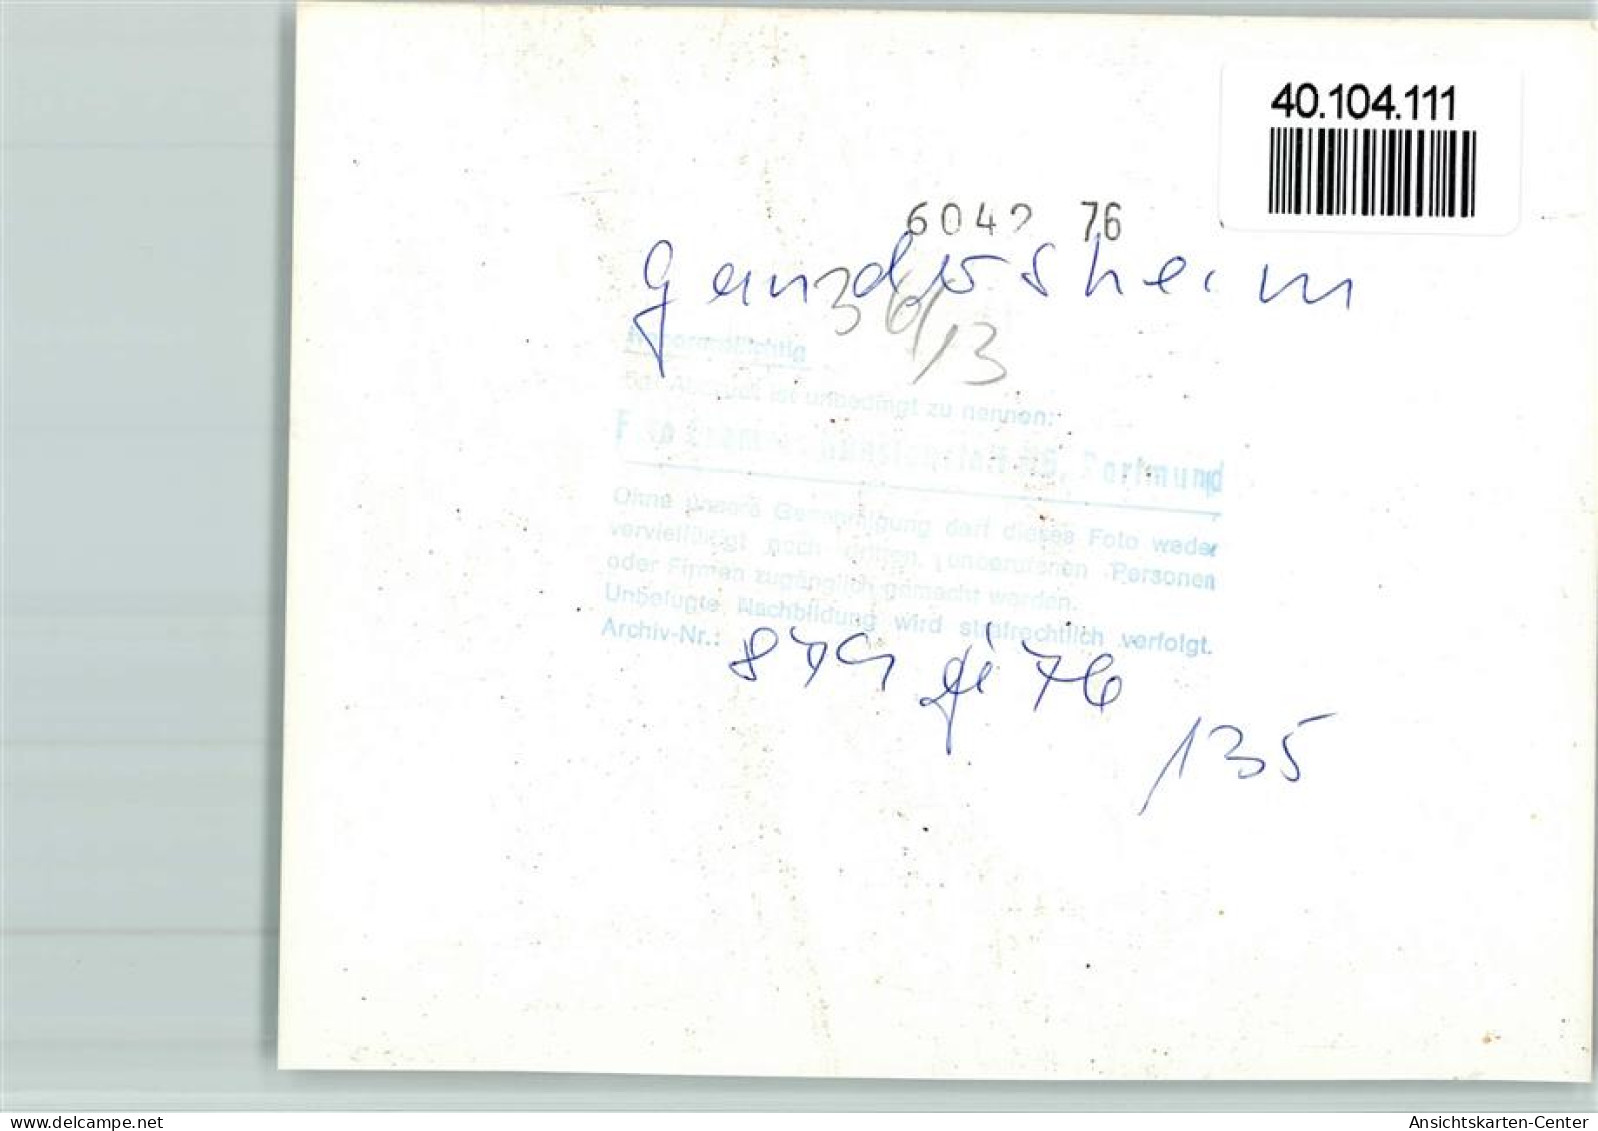 40.104.111
6042 76
Gandersheim
36/13
Honorarpflichtig
Bei Abdruck ist unbedingt zu nennen:
Dortmund
Ohne unsere Genehmigung darf dieses Foto weder
vervielfältigt noch dritten, unberufenen Personen
oder Firmen zugänglich gemacht werden.
Unbefugte Nachbildung wird strafrechtlich verfolgt.
Archiv-Nr.:
76
135
www.delcampe.net
Ansichtskarten-Center